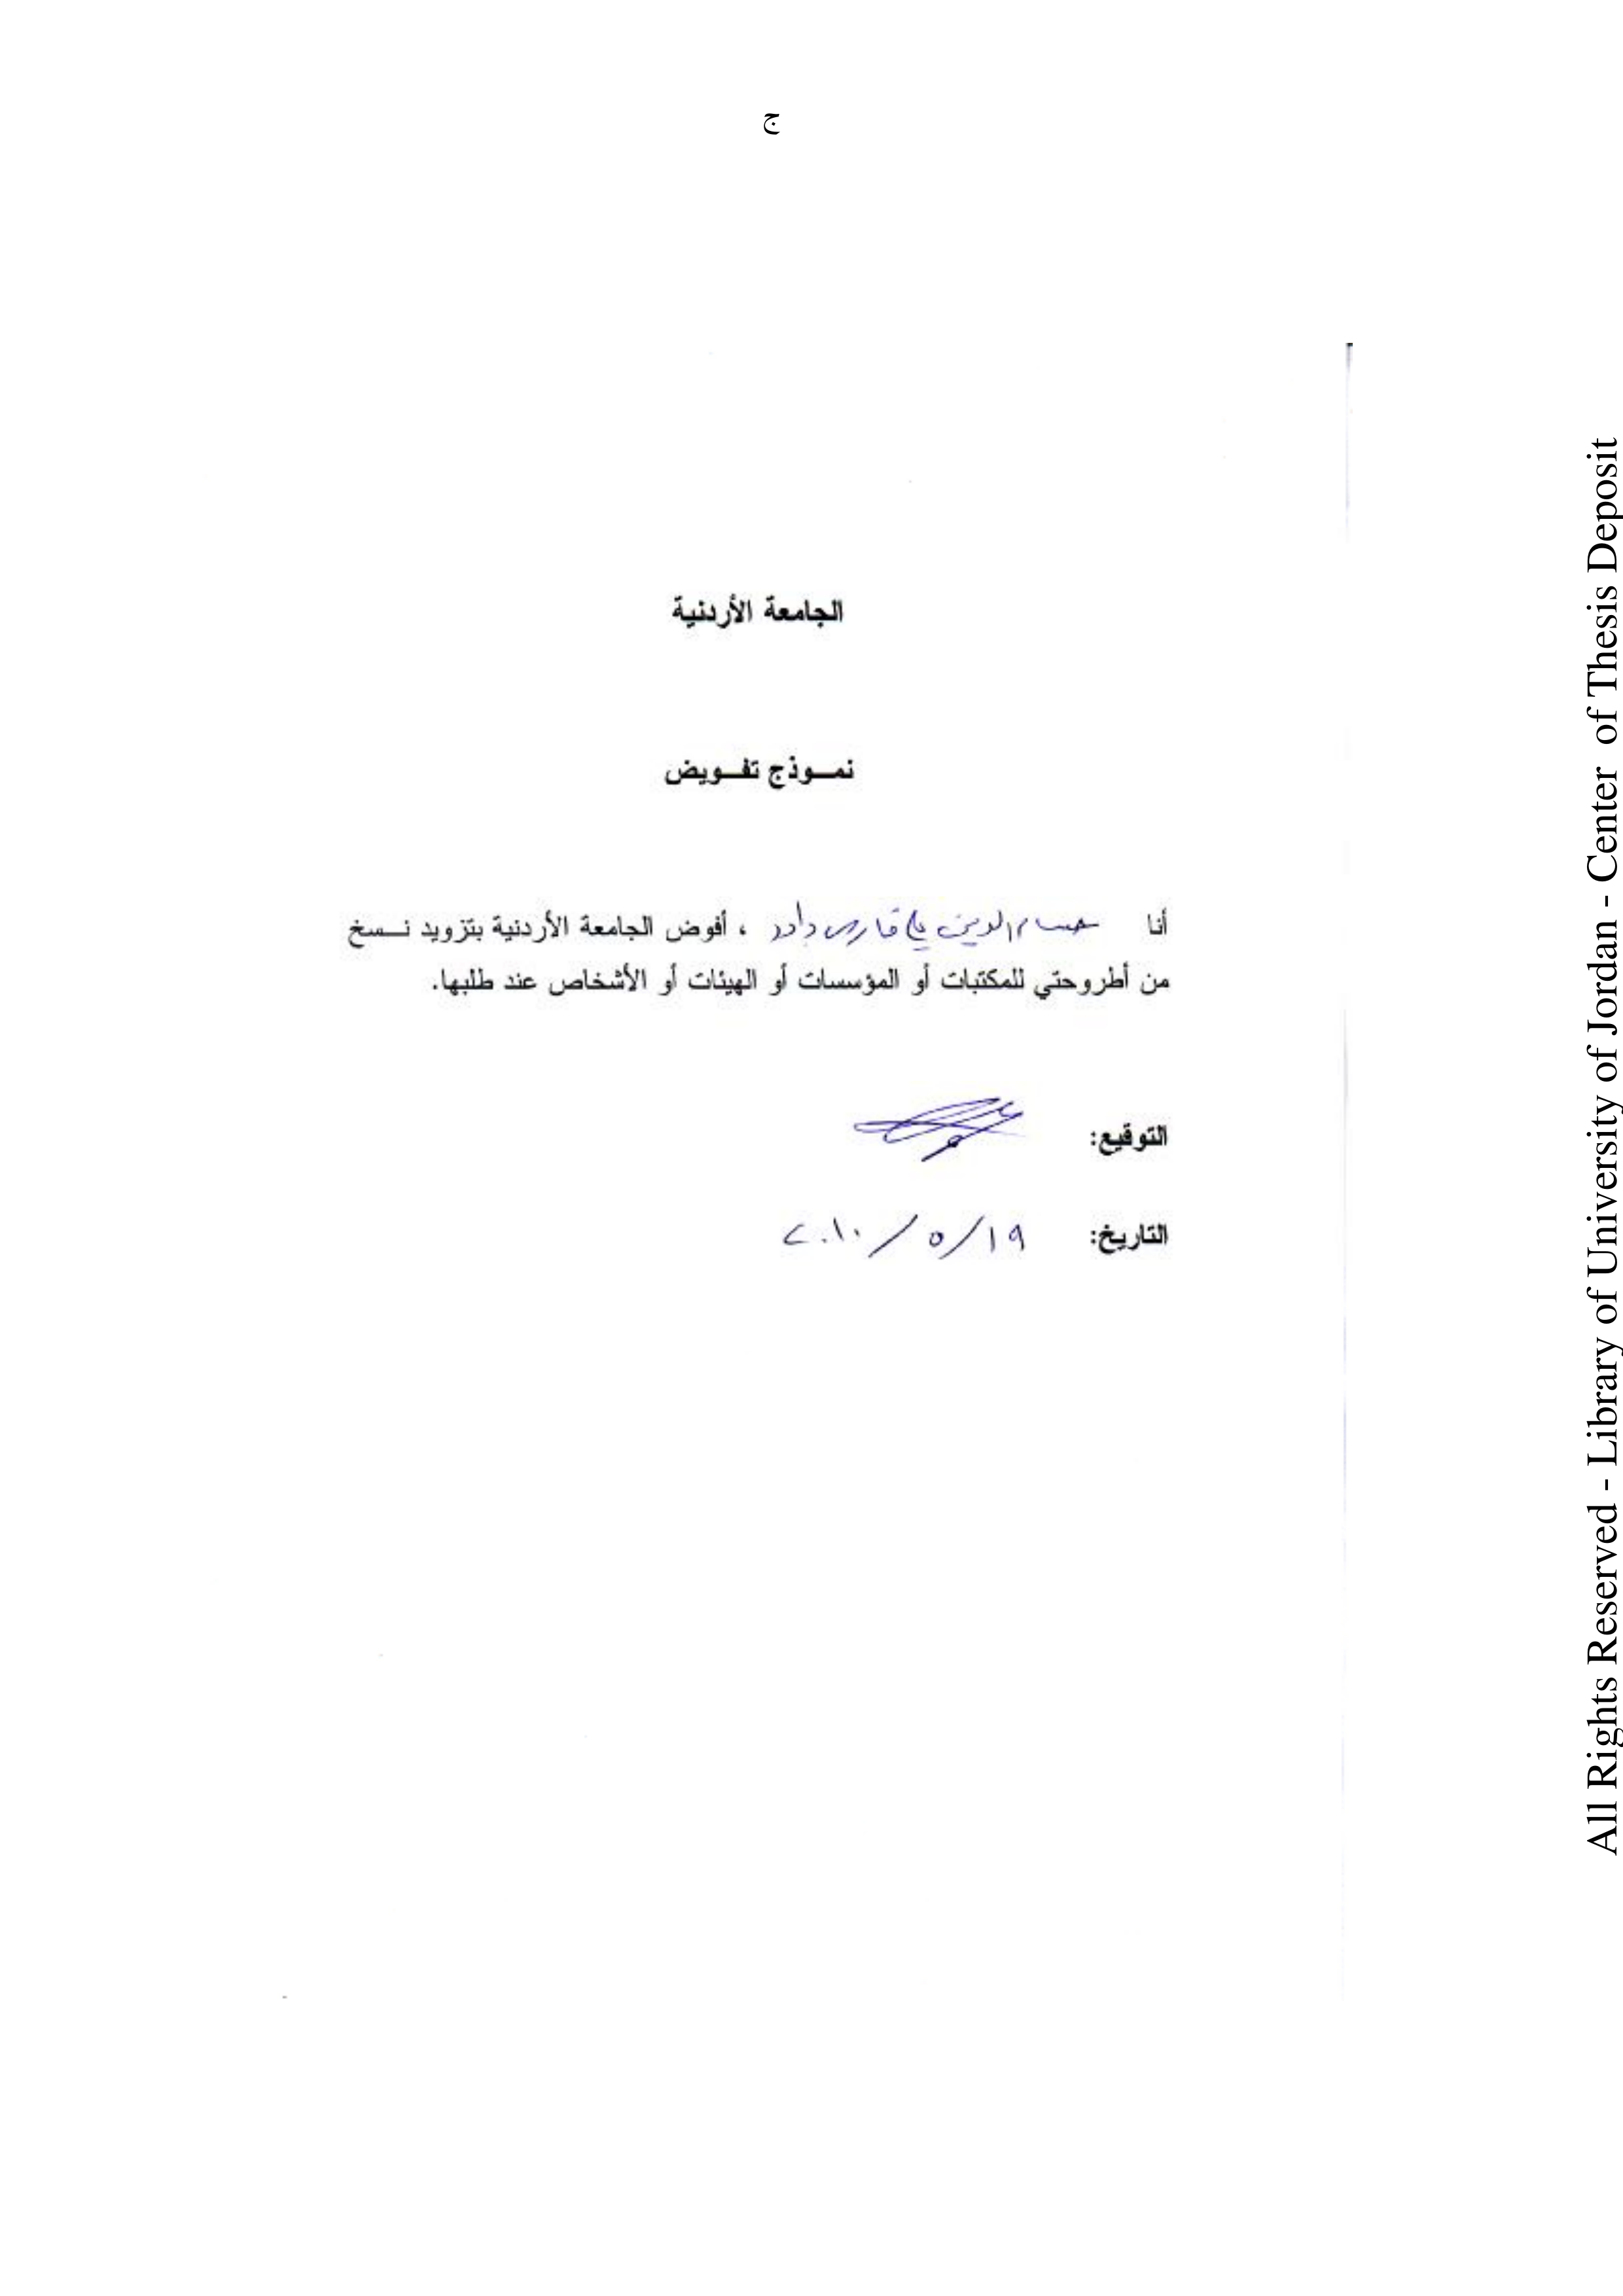 ج
الجامعة الأردنية
نموذج تفويض
أنا حسام الدين علي فارس داود ، أفوض الجامعة الأردنية بتزويد نسخ
من أطروحتي للمكتبات أو المؤسسات أو الهيئات أو الأشخاص عند طلبها.
التوقيع:
التاريخ: ١٩/ ٥ / ٢٠١٠
All Rights Reserved - Library of University of Jordan - Center of Thesis Deposit